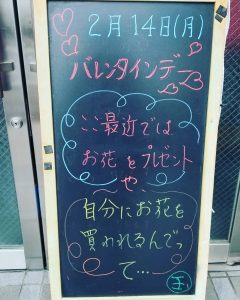 2月14日(月)
バレンタインデー
ここ最近では
お花をプレゼント
や、
自分にお花を
買われるんでっ
て…